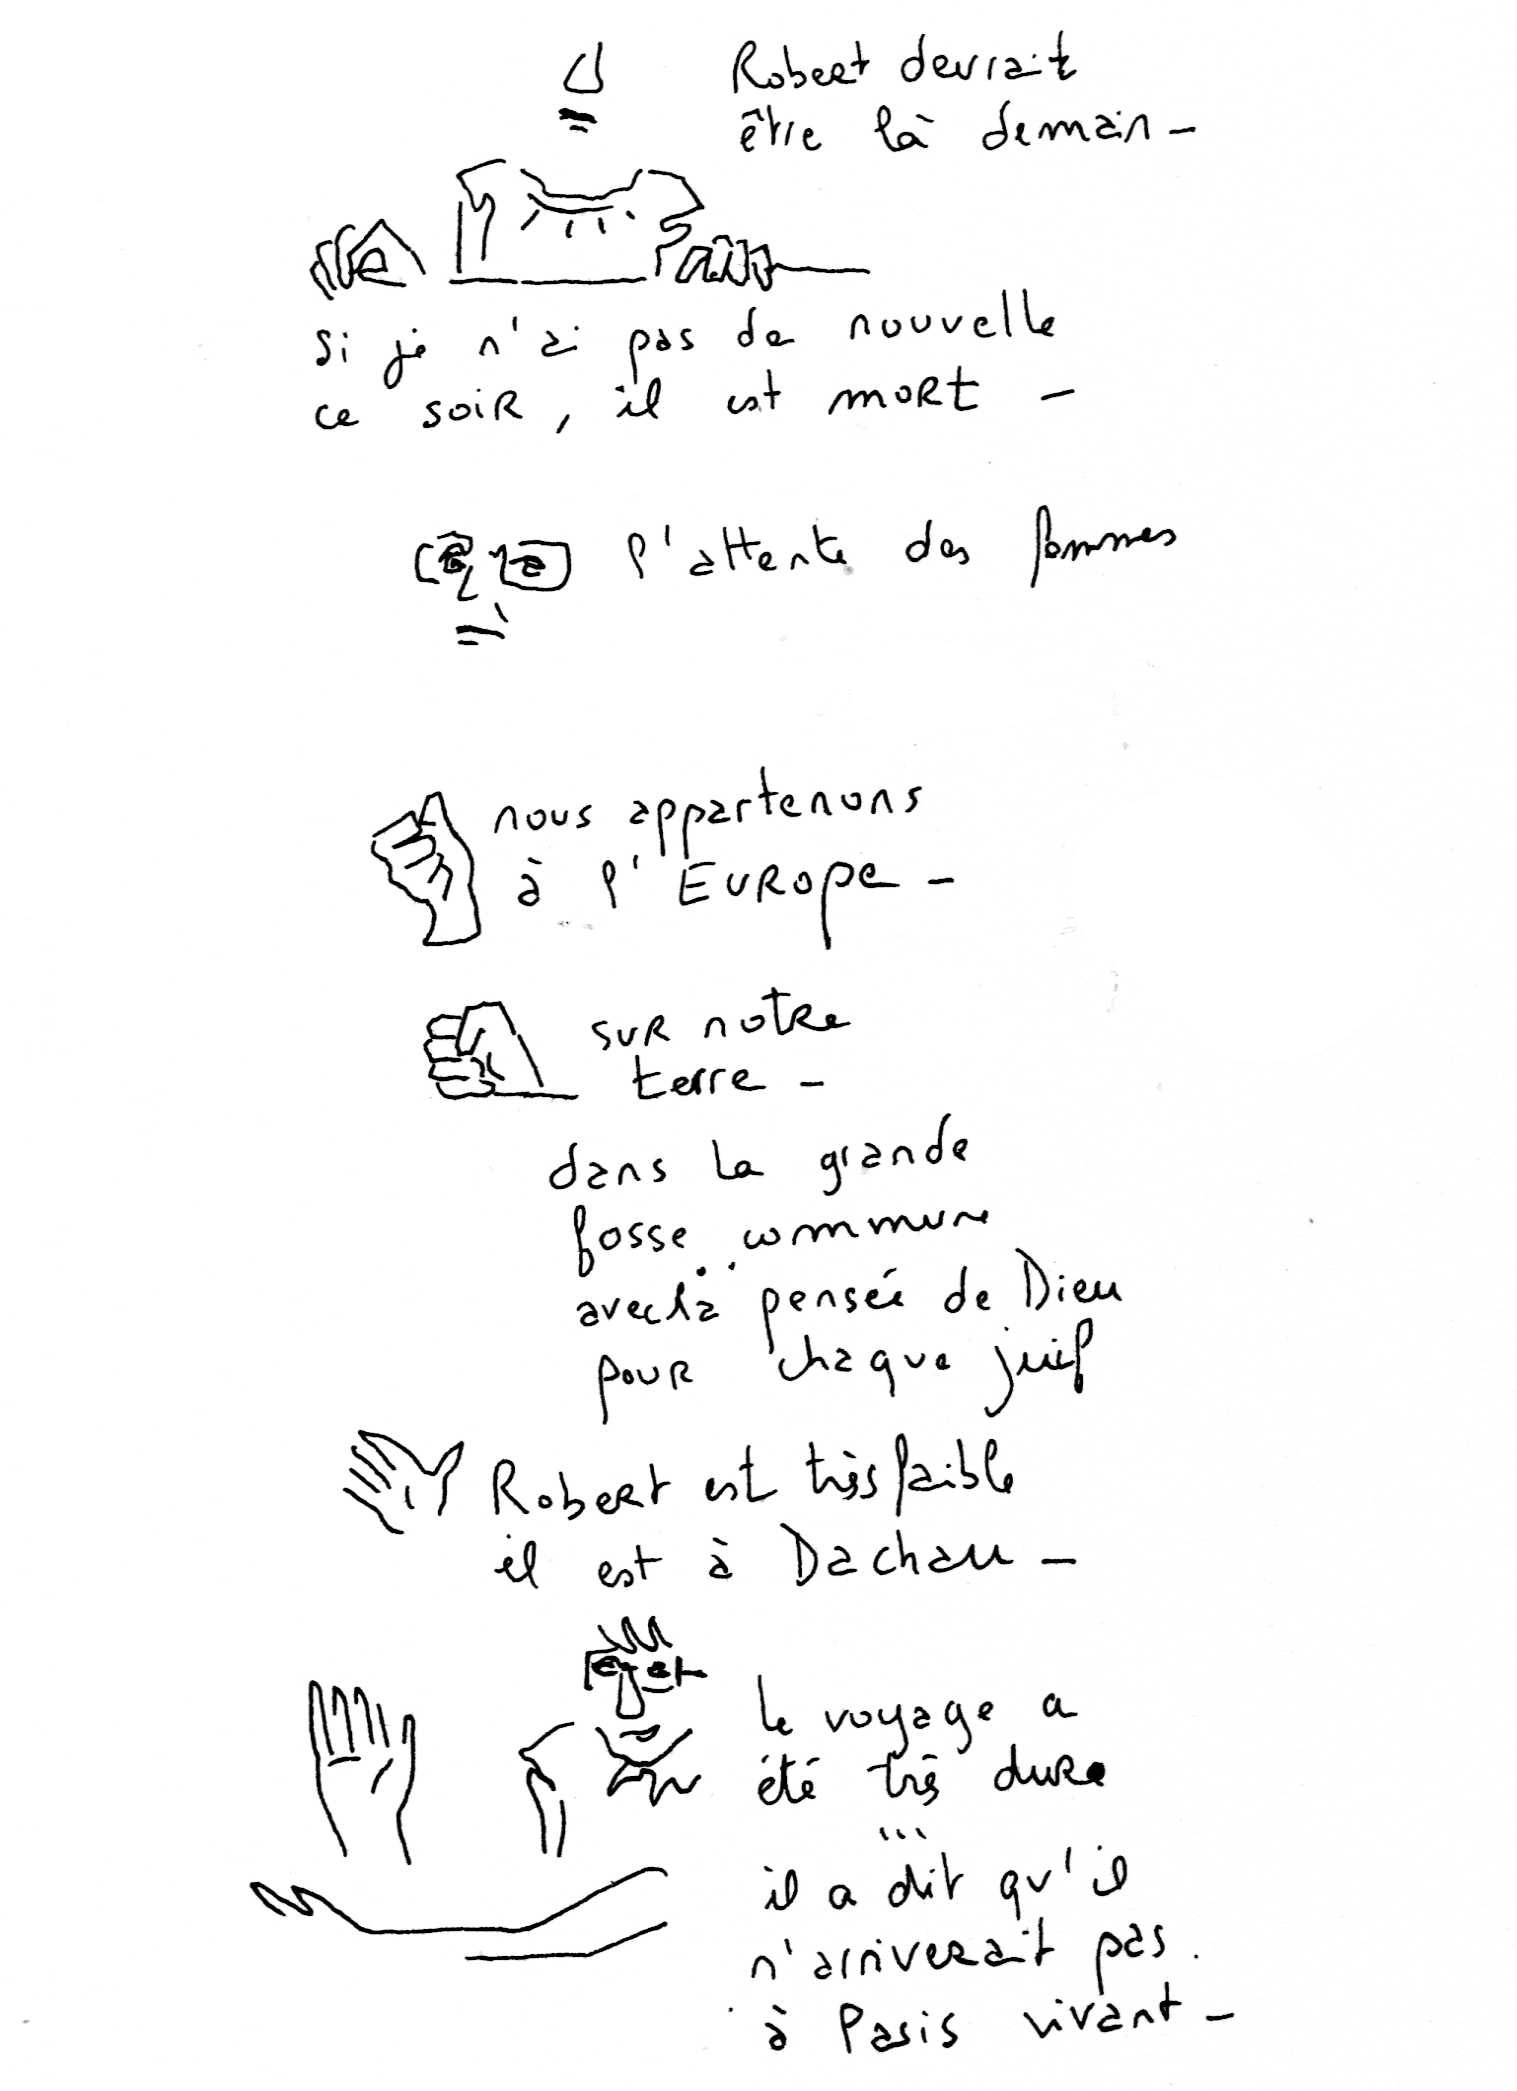 Robert devrait
être là demain -
si je n'ai pas de nouvelle
ce soir, il est mort -
l'attente des femmes
nous appartenons
à l'Europe -
sur notre
terre -
dans la grande
fosse commune
avec la pensée de Dieu
pour chaque juif
Robert est très faible
il est à Dachau -
le voyage a
été très dure
...
il a dit qu'il
n'arriverait pas
à Paris vivant -